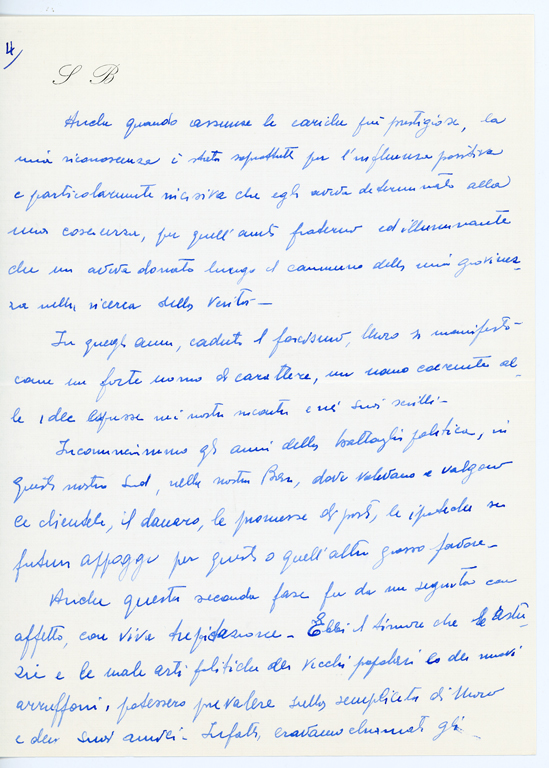 4/
S B
Anche quando assunse le cariche più prestigiose, la
mia riconoscenza è stata soprattutto per l'influenza positiva
e particolarmente incisiva che egli aveva determinato alla
mia coscienza, per quell'aiuto fraterno ed illuminante
che mi aveva donato lungo il cammino della mia giovinez-
za nella ricerca della Verità -
In quegli anni, caduto il fascismo, Moro si manifestò
come un forte uomo di carattere, un uomo coerente al-
le idee espresse nei nostri incontri e nei suoi scritti -
Incominciammo gli anni della battaglia politica, in
questo nostro Sud, nella nostra Bari, dove valevano e valgono
le clientele, il danaro, le promesse di posti, le ipoteche su
futuri appoggi per questo o quell'altro grosso favore -
Anche questa seconda fase fu da me seguita con
affetto, con viva trepidazione - Ebbi il timore che le astu-
zie e le male arti politiche dei vecchi popolari e dei nuovi
arruffoni, potessero prevalere sulla semplicità di Moro
e dei suoi amici - Infatti, eravamo chiamati gli -